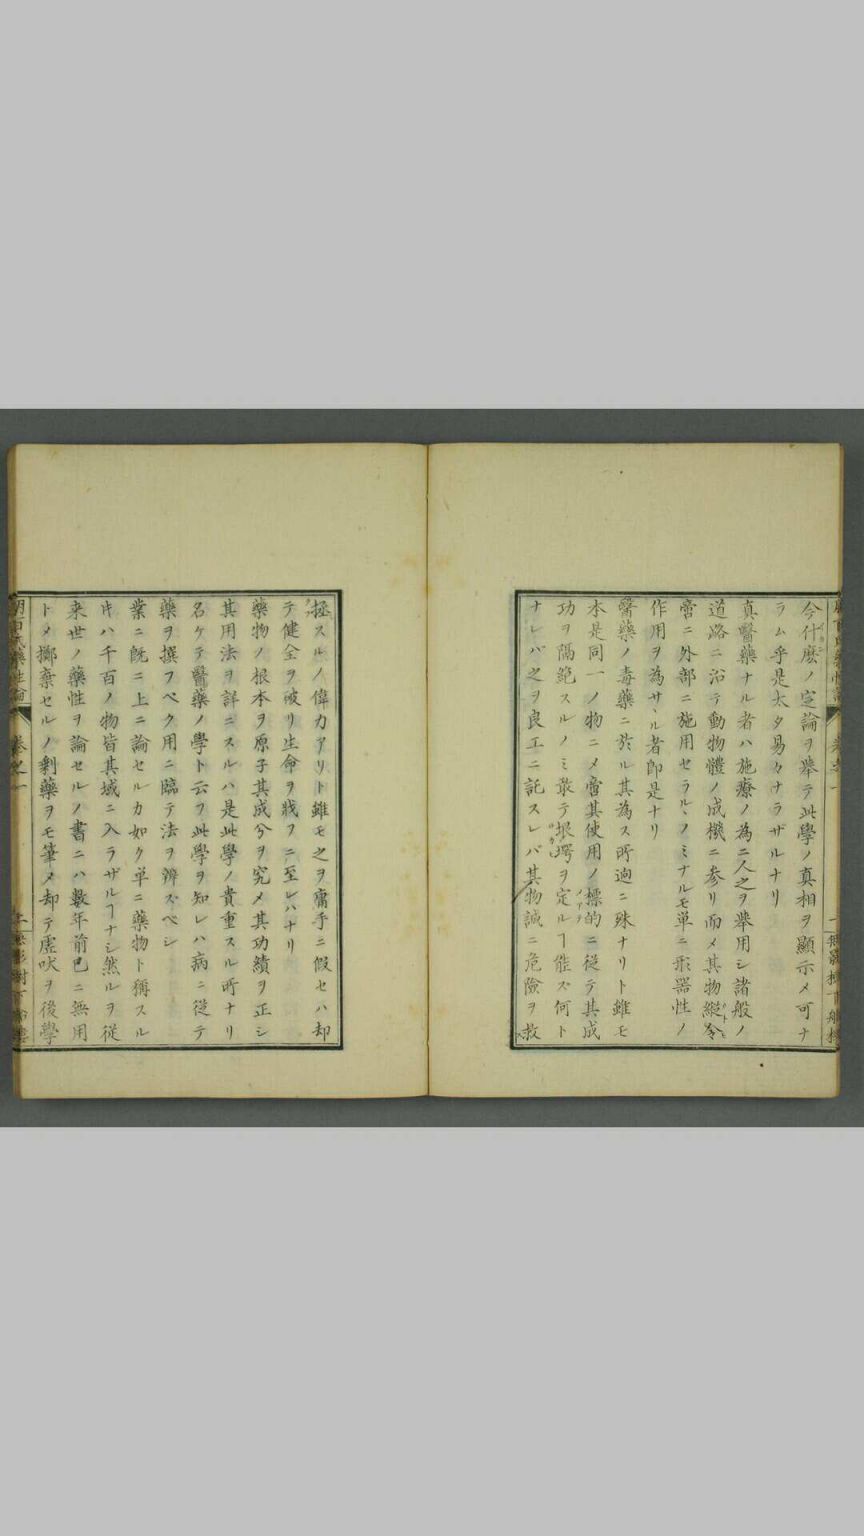 今什麽ノ定論ヲ舉テ此學ノ真相ヲ顯示メ可ナ
ラム乎是太タ易々ナラザルナリ
真醫藥ナル者ハ施療ノ為ニ人之ヲ舉用シ諸般ノ
道路ニ沿テ動物體ノ成機ニ參リ而メ其物縱令
啻ニ外部ニ施用セラルヽノミナルモ単ニ形器性ノ
作用ヲ為サヾル者即是ナリ
醫藥ノ毒藥ニ於ル其為ス所逈ニ殊ナリト雖モ
本是同一ノ物ニメ啻其使用ノ標的ニ従テ其成
功ヲ隔絶スルノミ敢テ垠堮ヲ定ルヿ能ズ何ト
ナレバ之ヲ良工ニ託スレバ其物誠ニ危險ヲ救
拯スルノ偉力アリト雖モ之ヲ庸手ニ假セハ却
テ健全ヲ破リ生命ヲ戕フニ至レハナリ
藥物ノ根本ヲ原子其成分ヲ究メ其功績ヲ正シ
其用法ヲ詳ニスルハ是此學ノ貴重スル所ナリ
名ケテ醫藥ノ學ト云フ此學ヲ知レハ病ニ従テ
藥ヲ撰フベク用ニ臨テ法ヲ辨ズベシ
業ニ既ニ上ニ論セルカ如ク単ニ藥物ト稱スル
キハ千百ノ物皆其域ニ入ラザルヿナシ然ルヲ従
来世ノ藥性ヲ論セルノ書ニハ數年前已ニ無用
トメ擲棄セルノ剩藥ヲモ筆メ却テ虚吠ヲ後學
卷之一